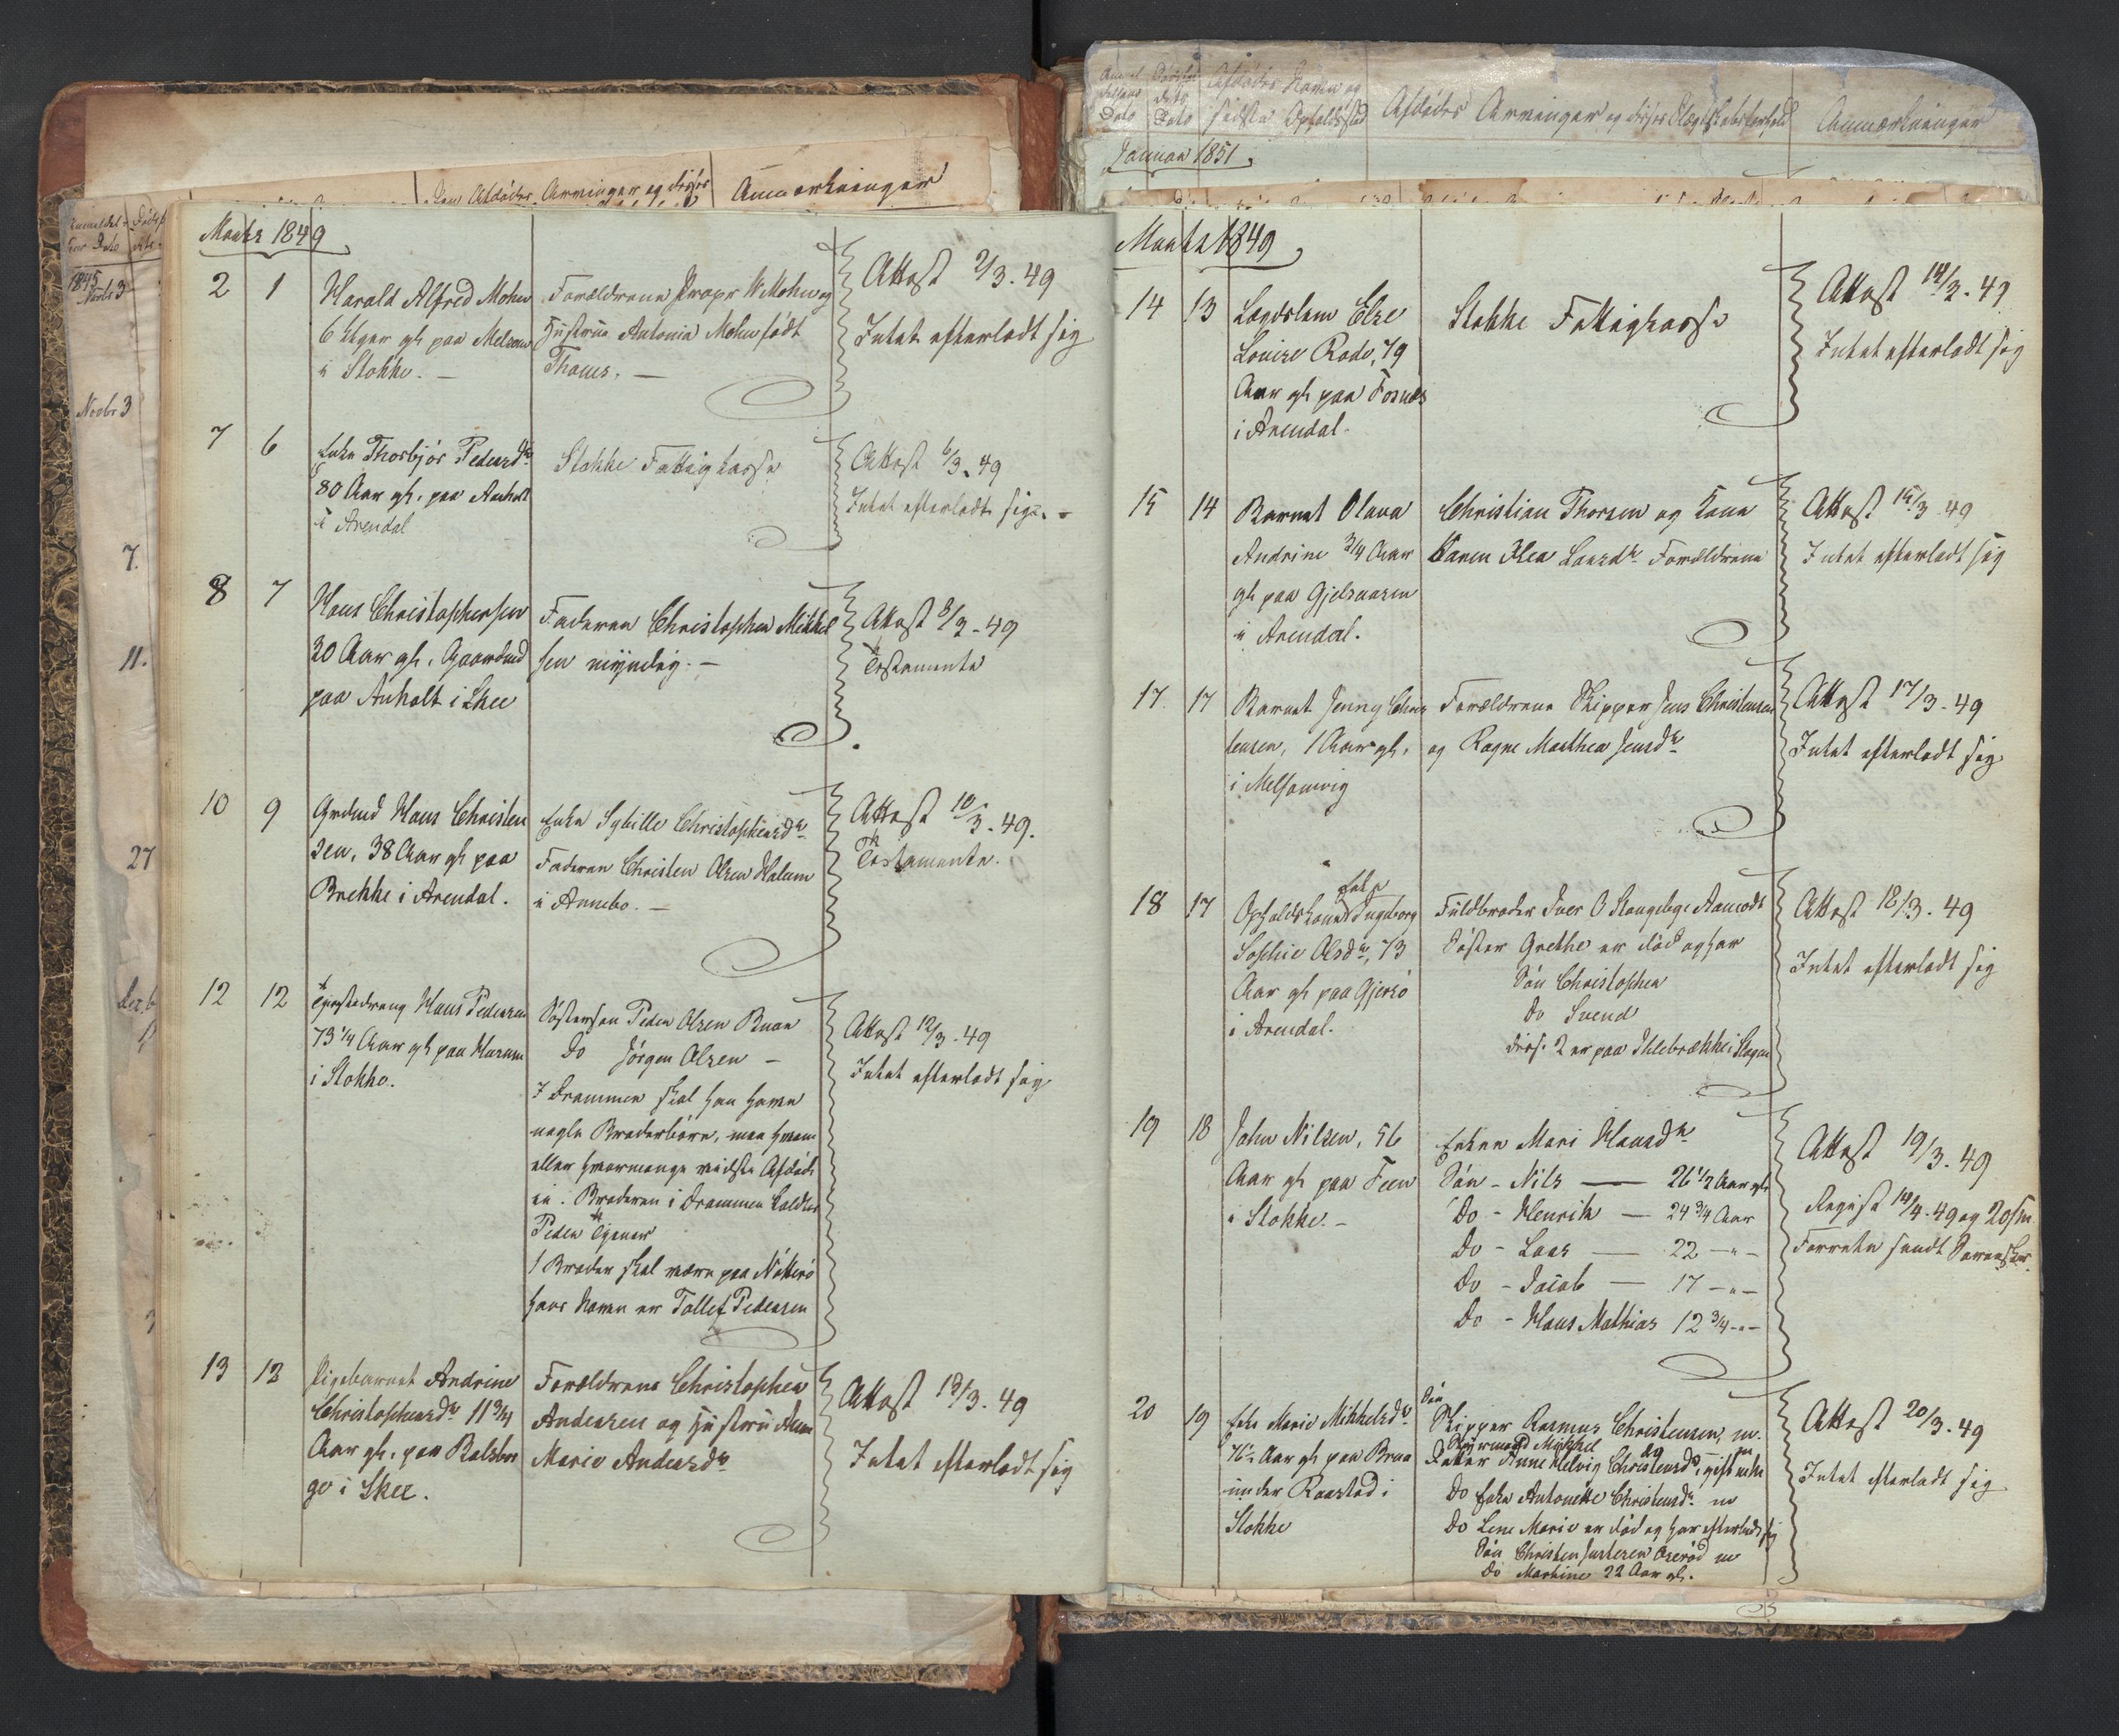 Anmærkninger
Marts 1849
2 1 Harald Alfred Mohn
6 Uger gl. paa Melsom
i Stokke. —
Forældrene Propr W. Mohn og
Hustrue Antonia Mohn født
Thoms. —
Attest 2/3. 49
Intet efterladt sig
7 6 Enke Thorbjør Pedersdr
80 Aar gl. paa Anholt
i Arendal
Stokke Fattigkasse
Attest 6/3. 49
Intet efterladt sig. -
8 7 Hans Christophersen
30 Aar gl. Gaardmd
paa Anholt i Skee
Faderen Christopher Mikkel
sen myndig. —
Attest 8/3 - 49
Testamente
10 9 Grdmd Hans Christen
sen, 38 Aar gl paa
Brekke i Arendal.
Enke Sybille Christophersdr
Faderen Christen Olsen Halum
i Arnebo. —
Attest 10/3. 49.
Testamente.
12 12 Tjenestedreng Hans Pedersen
73 1/4 Aar gl paa Harum
i Stokke.
Søstersøn Peder Olsen Buan
Do Jørgen Olsen —
I Drammen skal han have
nogle Broderbørn, men hvem
eller hvormange vidste Afdøde
ei. Broderen i Drammen kaldtes
Peder Tjener
1 Broder skal være paa Nøtterø
hans Navn er Tollef Pedersen
Attest 12/3. 49
Intet efterladt sig
13 12 Pigebarnet Andrine
Christophersdr 11 3/4
Aar gl. paa
i Skee.
Forældrene Christopher
Andersen og Hustru Anne
Marie Andersdr
Attest 13/3. 49
Intet efterladt sig
Afdødes Navn og
sidste Opholdssted
Afdødes Arvinger og disses Slægtskabsforhold
Anmærkninger
Januar 1851.
Marts 1849
14 13 Lægdslem Else
Louise Rode, 79
Aar gl paa Fosnæs
i Arendal.
Stokke Fattigkasse
Attest 14/3. 49
Intet efterladt sig
15 14 Barnet Olava
Andrine 3/4 Aar
gl paa Gjelsaasen
i Arendal.
Christian Thorsen og Kone
Karen Olea Larsdr Forældrene
Attest 15/3 49
Intet efterladt sig
17. 17 Barnet Jenny Chris
tensen, 1 Aar gl.
i Melsomvig
Forældrene Skipper Jens Christensen
og Ragne Marthea Jensdr
Attest 17/3. 49
Intet efterladt sig
18 17 Opholdskone Ingeborg
Sophie Olsdr, 73
Aar gl paa Gjersø
i Arendal.
Fuldbroder Iver O Stangebye Aamodt
Søster Grethe er død og har
Søn Christopher
Do Svend
disse 2 er paa Ihlebrække i Slagen
Attest 18/3. 49
Intet efterladt sig
19 18 John Nilsen, 56
Aar gl paa Feen
i Stokke. -
Enken Mari Hansdr
Søn - Nils — 26 1/2 Aar gl
Do - Henrik — 24 3/4 Aar
Do - Lars — 22 — " —
Do - Jacob — 17 — " —
Do - Hans Mathias 12 3/4 - " -
Attest 19/3. 49
Regist 14/4. 49 og
Forretn sendt Sorenskr.
20 19 Enke Marie Mikkelsdr
Aar gl paa Brua
under Raastad i
Stokke
Søn
Skipper Rasmus Christensen, m.
Styrmand Mikkel do m
Datter Anne Helvig Christensdr, gift
Do Enke Antonette Christensdr m
Do Lene Marie er død og har efterladt sig
Søn Christen Justesen Oserød m
Do Martine 22 Aar gl.
Attest 20/3. 49
Intet efterladt sig